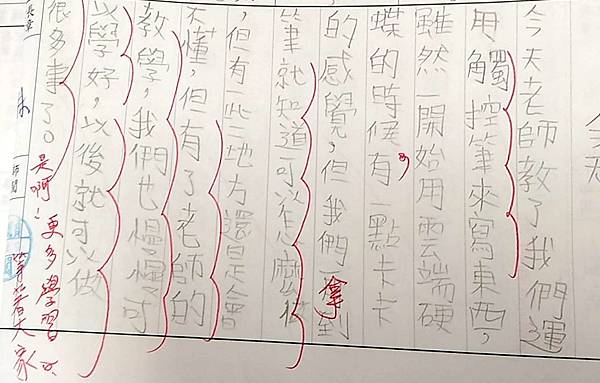 今天老師教了我們運
用觸控筆來寫東西，
雖然一開始用雲端硬
蝶的時候，有一點卡卡
的感覺，但我們一拿到
筆就知道可以怎麼
，但有一些地方還是會
不懂，但有了老師的
教學，我們也慢慢可
以學好，以後就可以做
很多事了。是啊！更多學習
等著大家